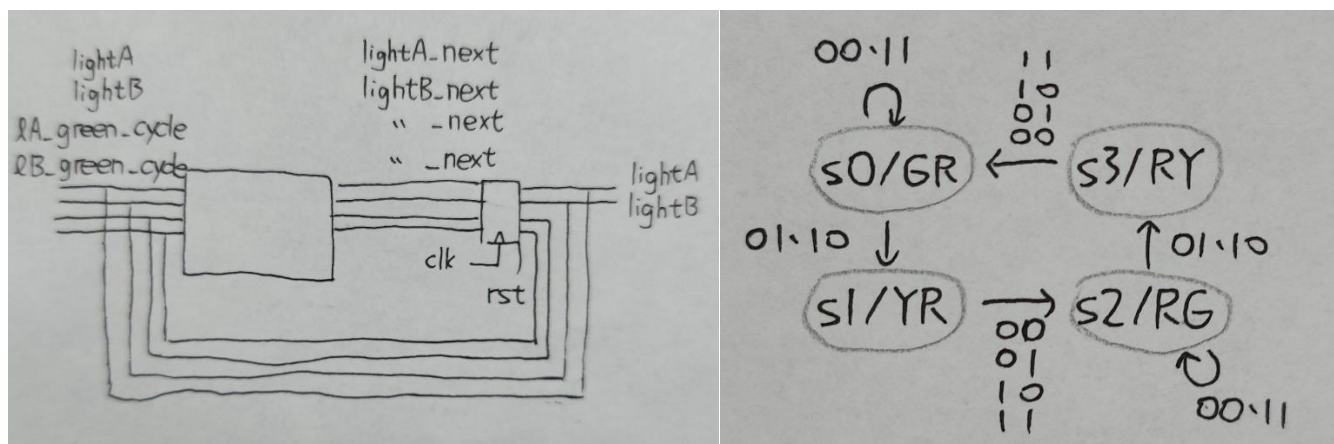 lightA
lightB
lA_green_cycle
lB_green_cycle
lightA_next
lightB_next
" _next
" _next
lightA
lightB
clk
rst
00·11
11
10
01
00
s0/GR
s3/RY
01·10
01·10
s1/YR
s2/RG
00
01
10
11
00·11